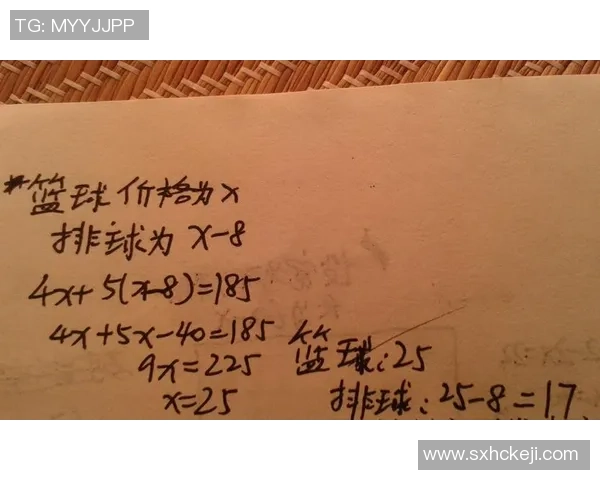 TG: MYYJJPP
篮球价格为x
排球为 x-8
4x+5(x-8)=185
4x+5x-40=185
9x=225
x=25
篮球:25
排球:25-8=17
www.sxhckeji.com